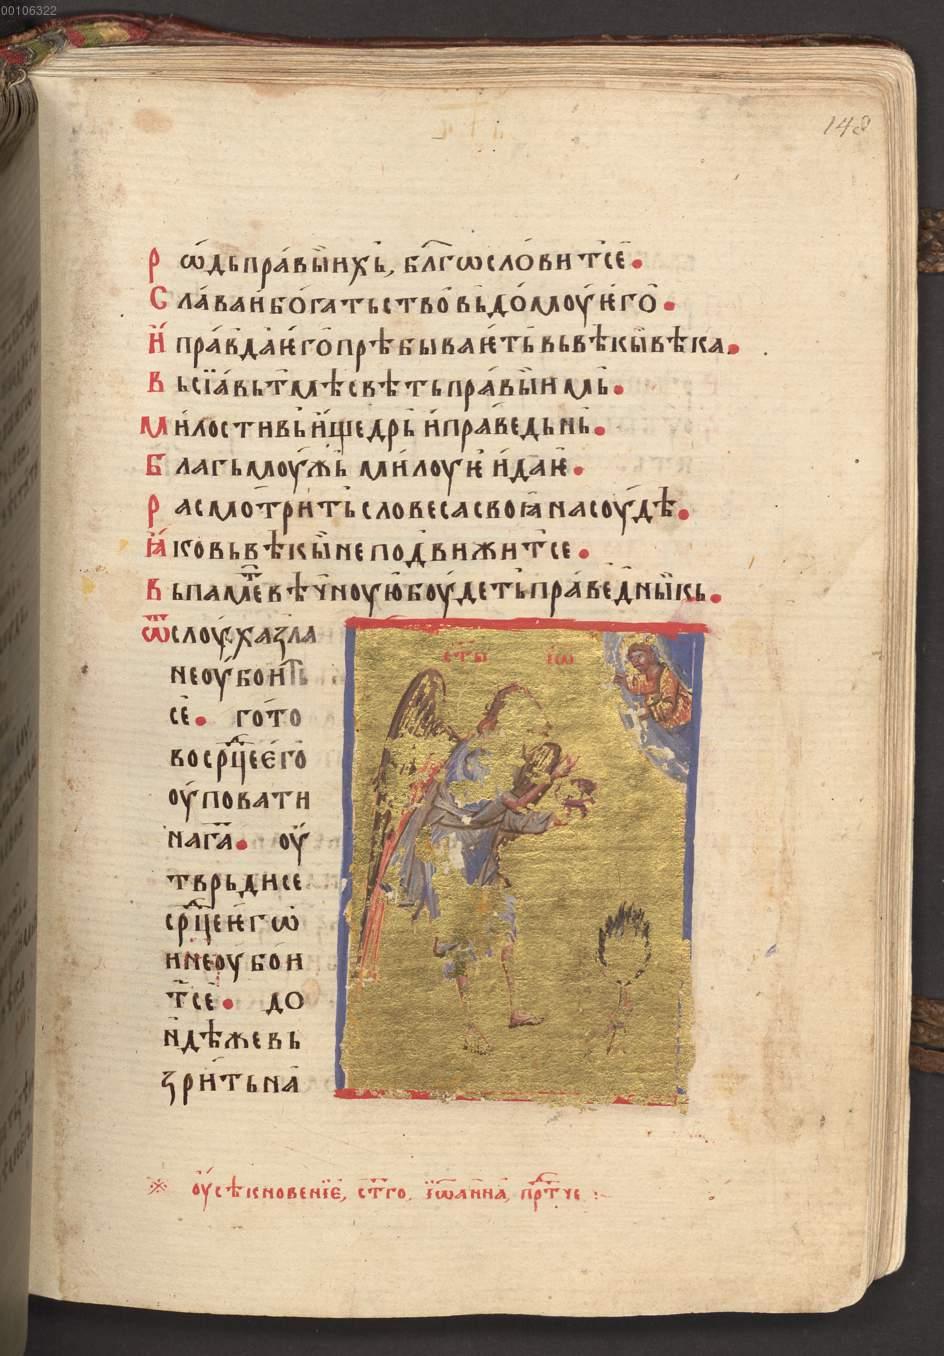 00106322
148
Рѡ́дь пра́вы́ихь, бл҃гѡсло́витсе.
Сла́ва и҆ бога́тьство вь до́моу ѥ҆го̀.
И҆ пра́вда ѥ҆го̀ прѣбыва́ѥть вь вѣкы̀ вѣка.
Вьсїа́ вь тмѣ свѣть пра́вы́имь.
Ми́лостивь и҆ ще́дрь и҆ пра́ведьнь.
Благь моу́жь ми́лоуѥ и҆ даѥ.
Расмо́трить словеса своꙗ̀ на соу́дѣ.
Ꙗ҆ко вь вѣкы̀ не подви́житсе.
Вь паме́ть вѣ́чноую боу́деть пра́ведны́кь.
Ѿ слоу́ха зла
не оубои́ть
се. гото
во ср҇дце є҆го̀
оу҆повати
на га҃. оу҆
тврьдисе
ср҇дце ѥ҆гѡ̀
и не оубои
тсе. до
и҆дѣже вь
зрить на
ст҃ы ІѠ
оу҆сѣкновенїе, ст҃го, їѡ҆а́нна, прⷣт҇че :